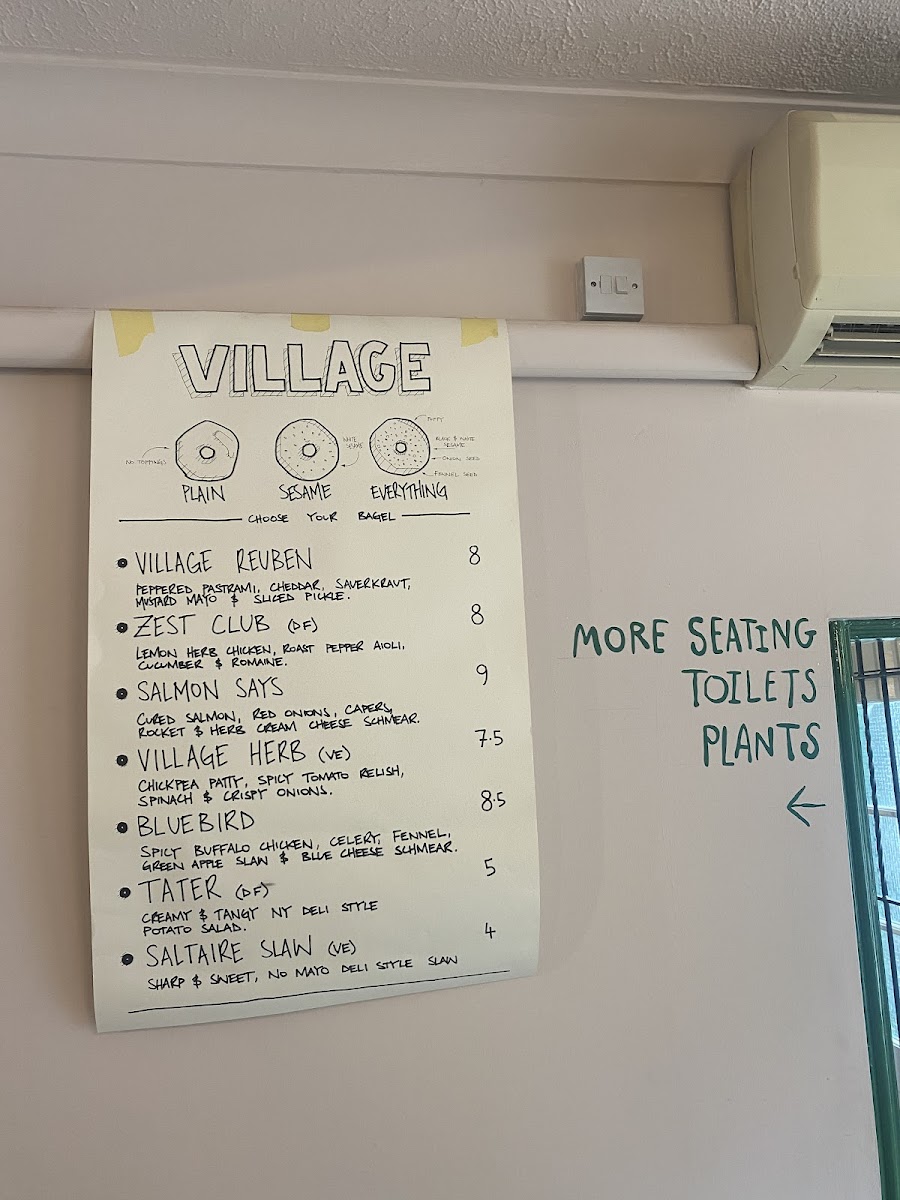 VILLAGE
NO TOPPINGS
WHITE
SESAME
POPPY
BLACK & WHITE
SESAME
ONION SEED
FENNEL SEED
PLAIN SESAME EVERYTHING
CHOOSE YOUR BAGEL
VILLAGE REUBEN 8
PEPPERED PASTRAMI, CHEDDAR, SAUERKRAUT,
MUSTARD MAYO & SLICED PICKLE.
ZEST CLUB (DF) 8
LEMON HERB CHICKEN, ROAST PEPPER AIOLI,
CUCUMBER & ROMAINE.
SALMON SAYS 9
CURED SALMON, RED ONIONS, CAPERS,
ROCKET & HERB CREAM CHEESE SCHMEAR.
VILLAGE HERB (VE) 7.5
CHICKPEA PATTY, SPICY TOMATO RELISH,
SPINACH & CRISPY ONIONS.
BLUEBIRD 8.5
SPICY BUFFALO CHICKEN, CELERY, FENNEL,
GREEN APPLE SLAW & BLUE CHEESE SCHMEAR.
TATER (DF) 5
CREAMY & TANGY NY DELI STYLE
POTATO SALAD.
SALTAIRE SLAW (VE) 4
SHARP & SWEET, NO MAYO DELI STYLE SLAW
MORE SEATING
TOILETS
PLANTS
←